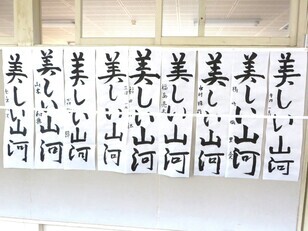 美しい山河
美しい山河
美しい山河
美しい山河
美しい山河
美しい山河
美しい山河
美しい山河